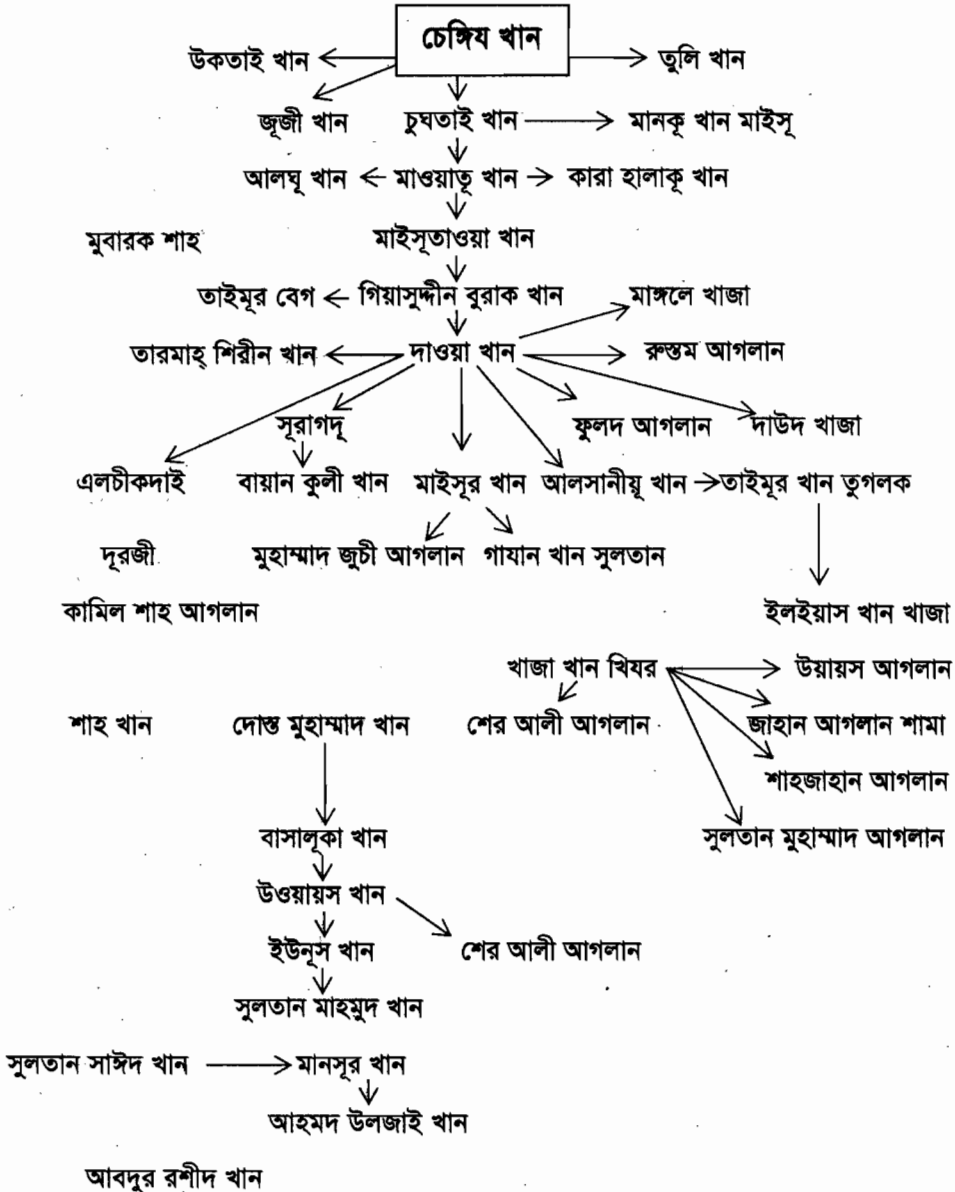 চেঙ্গিয খান
উকতাই খান তুলি খান
জূজী খান চুঘতাই খান মানকূ খান মাইসূ
আলঘূ খান মাওয়াতূ খান কারা হালাকূ খান
মুবারক শাহ মাইসূতাওয়া খান
তাইমূর বেগ গিয়াসুদ্দীন বুরাক খান মাঙ্গলে খাজা
তারমাহ্ শিরীন খান দাওয়া খান রুস্তম আগলান
সূরাগদূ ফুলদ আগলান দাউদ খাজা
এলচীকদাই বায়ান কুলী খান মাইসূর খান আলসানীয়ূ খান তাইমূর খান তুগলক
দূরজী মুহাম্মাদ জুচী আগলান গাযান খান সুলতান
কামিল শাহ আগলান ইলইয়াস খান খাজা
খাজা খান খিযর উয়ায়স আগলান
শাহ খান দোস্ত মুহাম্মাদ খান শের আলী আগলান জাহান আগলান শামা
শাহজাহান আগলান
বাসালূকা খান সুলতান মুহাম্মাদ আগলান
উওয়ায়স খান
ইউনূস খান শের আলী আগলান
সুলতান মাহমুদ খান
সুলতান সাঈদ খান মানসূর খান
আহমদ উলজাই খান
আবদুর রশীদ খান